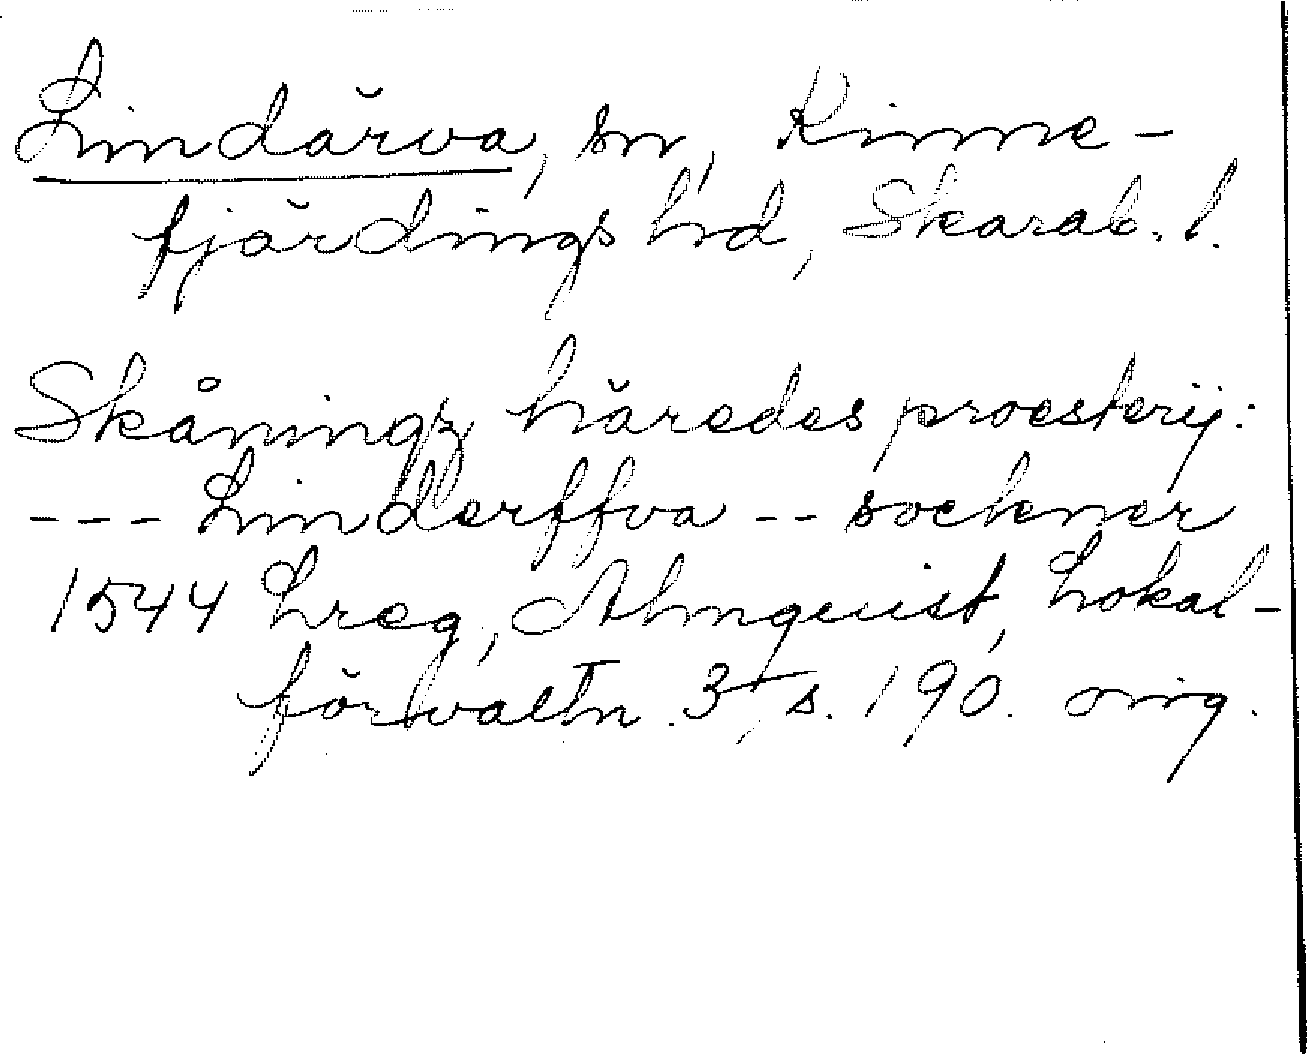 Lindärva, sn, Kinne-
fjärdings hd, Skarab. l.
Skåningz häredes proesterij:
--- Linderffva -- sockener
1544 Lreg, Almquist, Lokal-
förvaltn. 3, s. 190. orig.